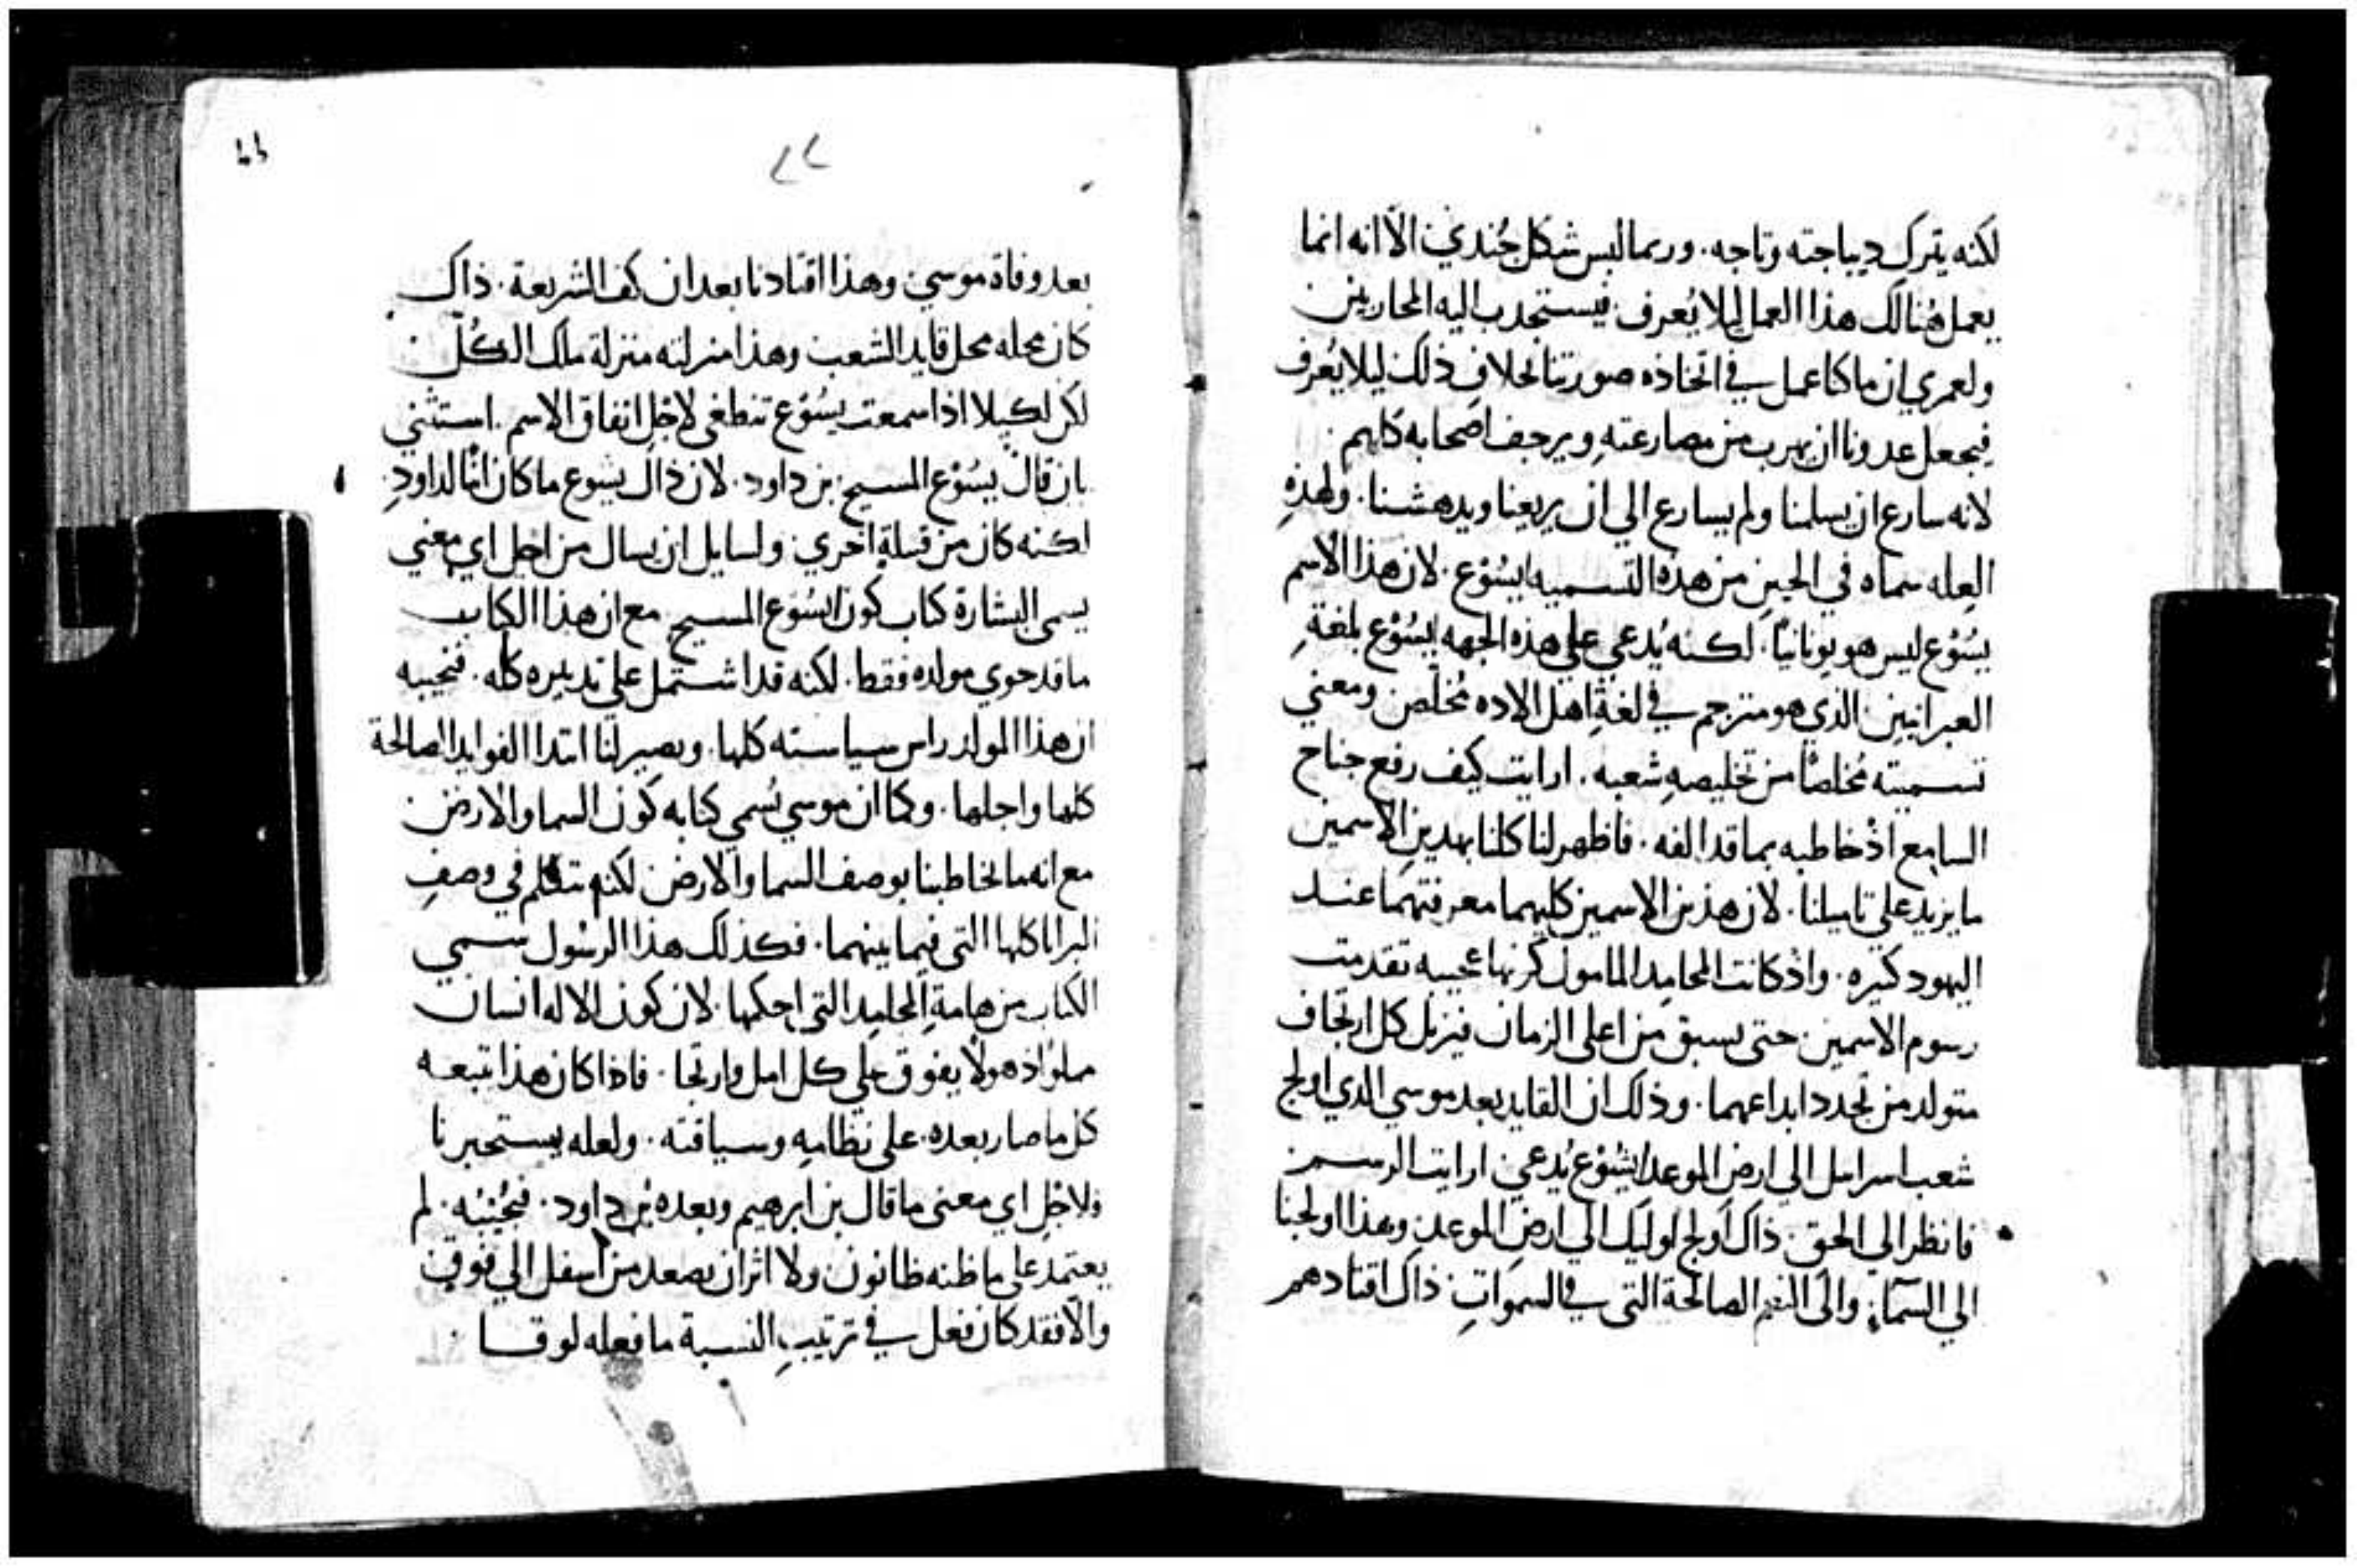 لكنه يترك ديباجته وتاجه. وربما لبس شكل جُندي الّا انه انما
يعمل هُنالك هذا العمل ليلا يُعرف فيستجدب اليه المحاربين
ولعمري ان ما كاعمل في اتخاذه صورتنا بخلاف ذلك ليلا يُعرف
فيجعل عدونا ان يهرب من مصارعتهِ ويرجف اصحابه كلهم.
لانه سارع ان يسلمنا ولم يسارع الي ان يريعنا ويدهشنا. ولهذهِ
العِله سماه في الحين من هذه التسميه ايسُوْع. لان هذا الاسم
يسُوْع ليس هو يونانيًا. لكنه يُدعي علي هذه الجهه ايسُوْع بلغةِ
العبرانيين الذي هو مترجم في لغةِ اهل الاده مُخلّص ومعني
تسميته مُخلصًا من تخليصهِ شعبه. ارايت كيف رفع جناح
السامع اذْ خاطبه بما قد الفه. فاظهر لنا كلنا بهدينِ الاسمين
ما يزيد علي تاميلنا. لان هذين الاسمين كليهما معرفتهما عند
اليهود كثيره. واذْ كانت المحامِد المامول كونها عجيبه تقدمت
رسوم الاسمين حتى يسبق من اعلي الزمان فيزيل كل ارتجاف
متولد من تجدد ابداعهما. وذلك ان القايد بعد موسي الذي اولج
شعب اسرايل الي ارض الموعد ايسُوْع يُدعي ارايت الرسم
فانظر الي الحق ذاك اَولج اوليك الي ارضِ الموعد وهذا اولجنا
الي السمآءِ والَى النعم الصالحة التي في السمَواتِ ذاك اقتادهم
٢٢
بعد وفاة موسي وهذا اقتادنا بعد ان كف الشريعة. ذاك
كان محله محل قايد الشعب وهذا منزلته منزلة ملك الكُلّ
لكن لكيلا اذا سمعت يسُوْع تنطغى لاجْل اتفاق الاسم. استثني
بان قالَ يسُوْع المسيح بن داود. لان ذاك يشوع ما كان ابنًا لداودِ.
لكنه كان من قبيلةٍ اخري ولسايل ان يسال من اجل اي معني
يسمي البشارة كتاب كون ايسُوْع المسيح مع ان هذا الكتاب
ما قد حوي مولده فقط. لكنه قد اشتمل علي تدبيره كله. فنجيبه
ان هذا المولد راس سياسته كلها. ويصير لنا ابتدا الفوايد الصالحة
كلها واجلها. وكما ان موسي يُسمي كتابه كون السما والارض
مع انه ما خاطبنا بوصف السما والارض لكنه تكلم في وصفِ
البرايا كلها التي فيما بينهما. فكذلك هذا الرسُول سمي
الكتاب من هامةِ المحامِد التي احكمها. لان كون الاله انسان
مملوًا ذهولًا يفوق علي كل امل وارتجا. فاذا كان هذا تبعه
كل ما صار بعده علي نظامهِ وسياقته. ولعله يستخبرنا
ولاجل اي معنى ما قال بن ابرهيم وبعده بن داود. فنُجيبُه. لم
يعتمد علي ما ظنه ظانون ولا اثر ان يصعد من اسفل الي فوق
والّا فقد كان فعل في ترتيبِ النسبة ما فعله لوقا